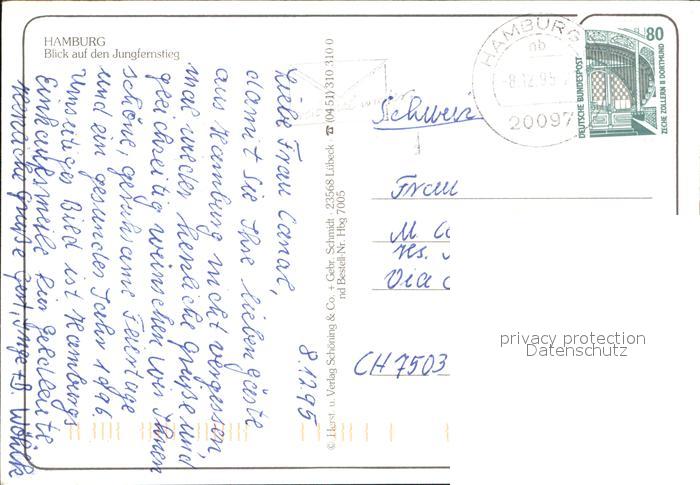 HAMBURG
Blick auf den Jungfernstieg
8.12.95
Liebe Frau Canal,
damit Sie Ihre lieben Gäste
aus Hamburg nicht vergessen,
mal wieder herzliche Grüße und
gleichzeitig wünschen wir Ihnen
schöne, geruhsame Feiertage
und ein gesundes Jahr 1996.
Umseitiges Bild ist Hamburgs
Einkaufsmeile für
Herzliche Grüße
© Herst. u. Verlag Schöning & Co. + Gebr. Schmidt · 23568 Lübeck ☎ (0451) 310 310 0
nd Bestell-Nr. Hbg 7005
HAMBURG
nb
-8.12.95
20097
80
DEUTSCHE BUNDESPOST
ZECHE ZOLLERN II DORTMUND
Schweiz
Frau
M
Hs.
Via
CH 7503
privacy protection
Datenschutz